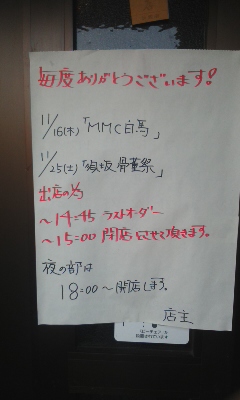 毎度ありがとうございます!
11/16(木)「MMC白馬」
11/25(土)「須坂骨董祭」
出店の為
〜14:45 ラストオーダー
〜15:00 閉店にさせて頂きます。
夜の部は
18:00〜開店します。
店主